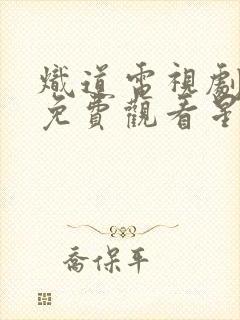 熾道電視劇
免費觀看星
喬保平